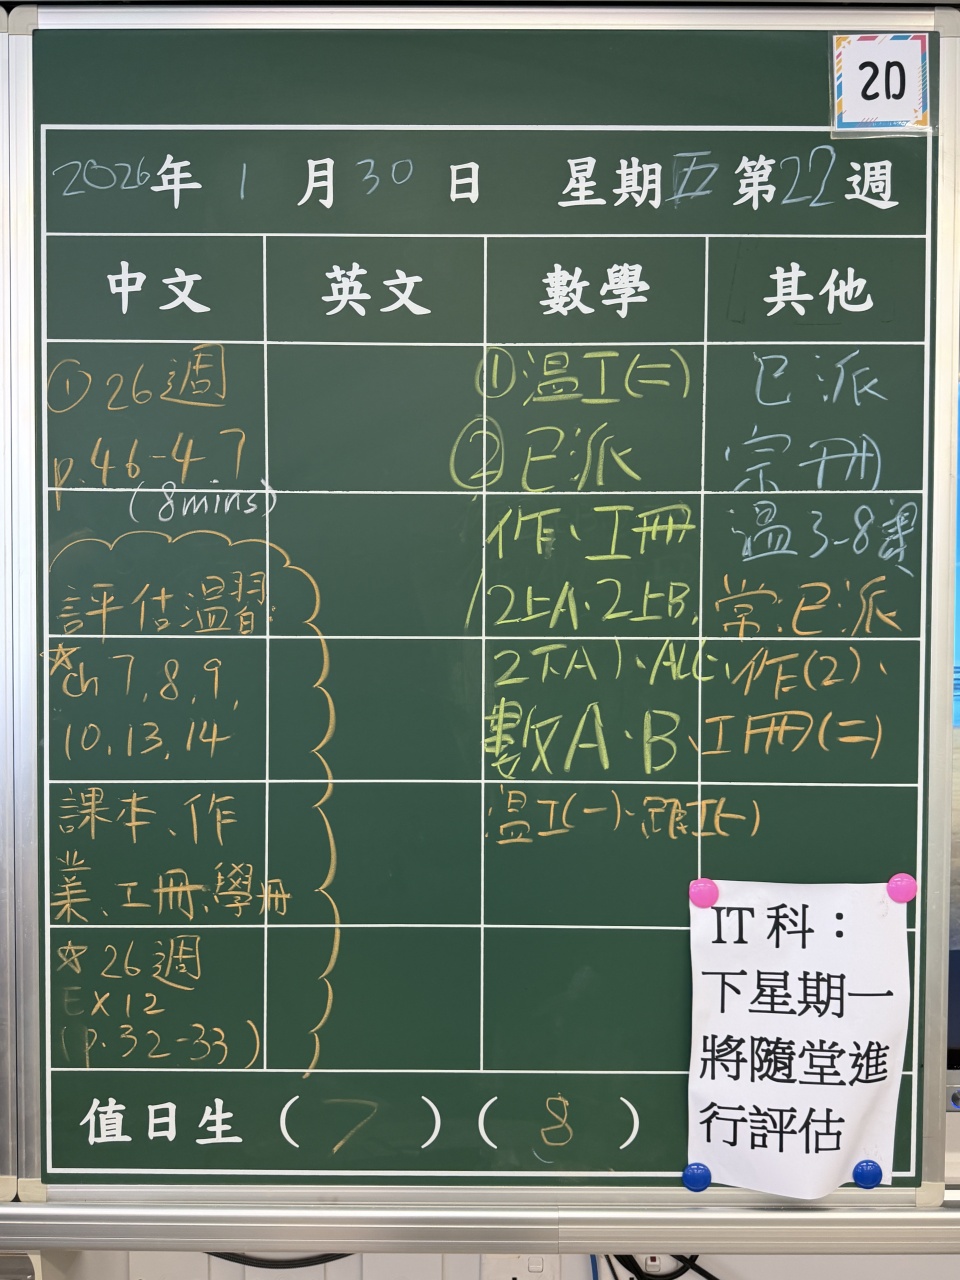 2D
2026年1月30日 星期五 第22週
中文 英文 數學 其他
①26週
p.46-47
(8mins)
評估溫習:
☆ch 7,8,9,
10,13,14
課本、作
業、工冊、學冊
☆26週
EX12
(p.32-33)
①温工(二)
②已派
作、工冊
(2上A、2上B,
2下A)、ALC、
數A、B
已派
宗冊
溫3-8課
常:已派
作(2)、
工冊(二)
温工(一)、
值日生(7)(8)
IT科：
下星期一
將隨堂進
行評估